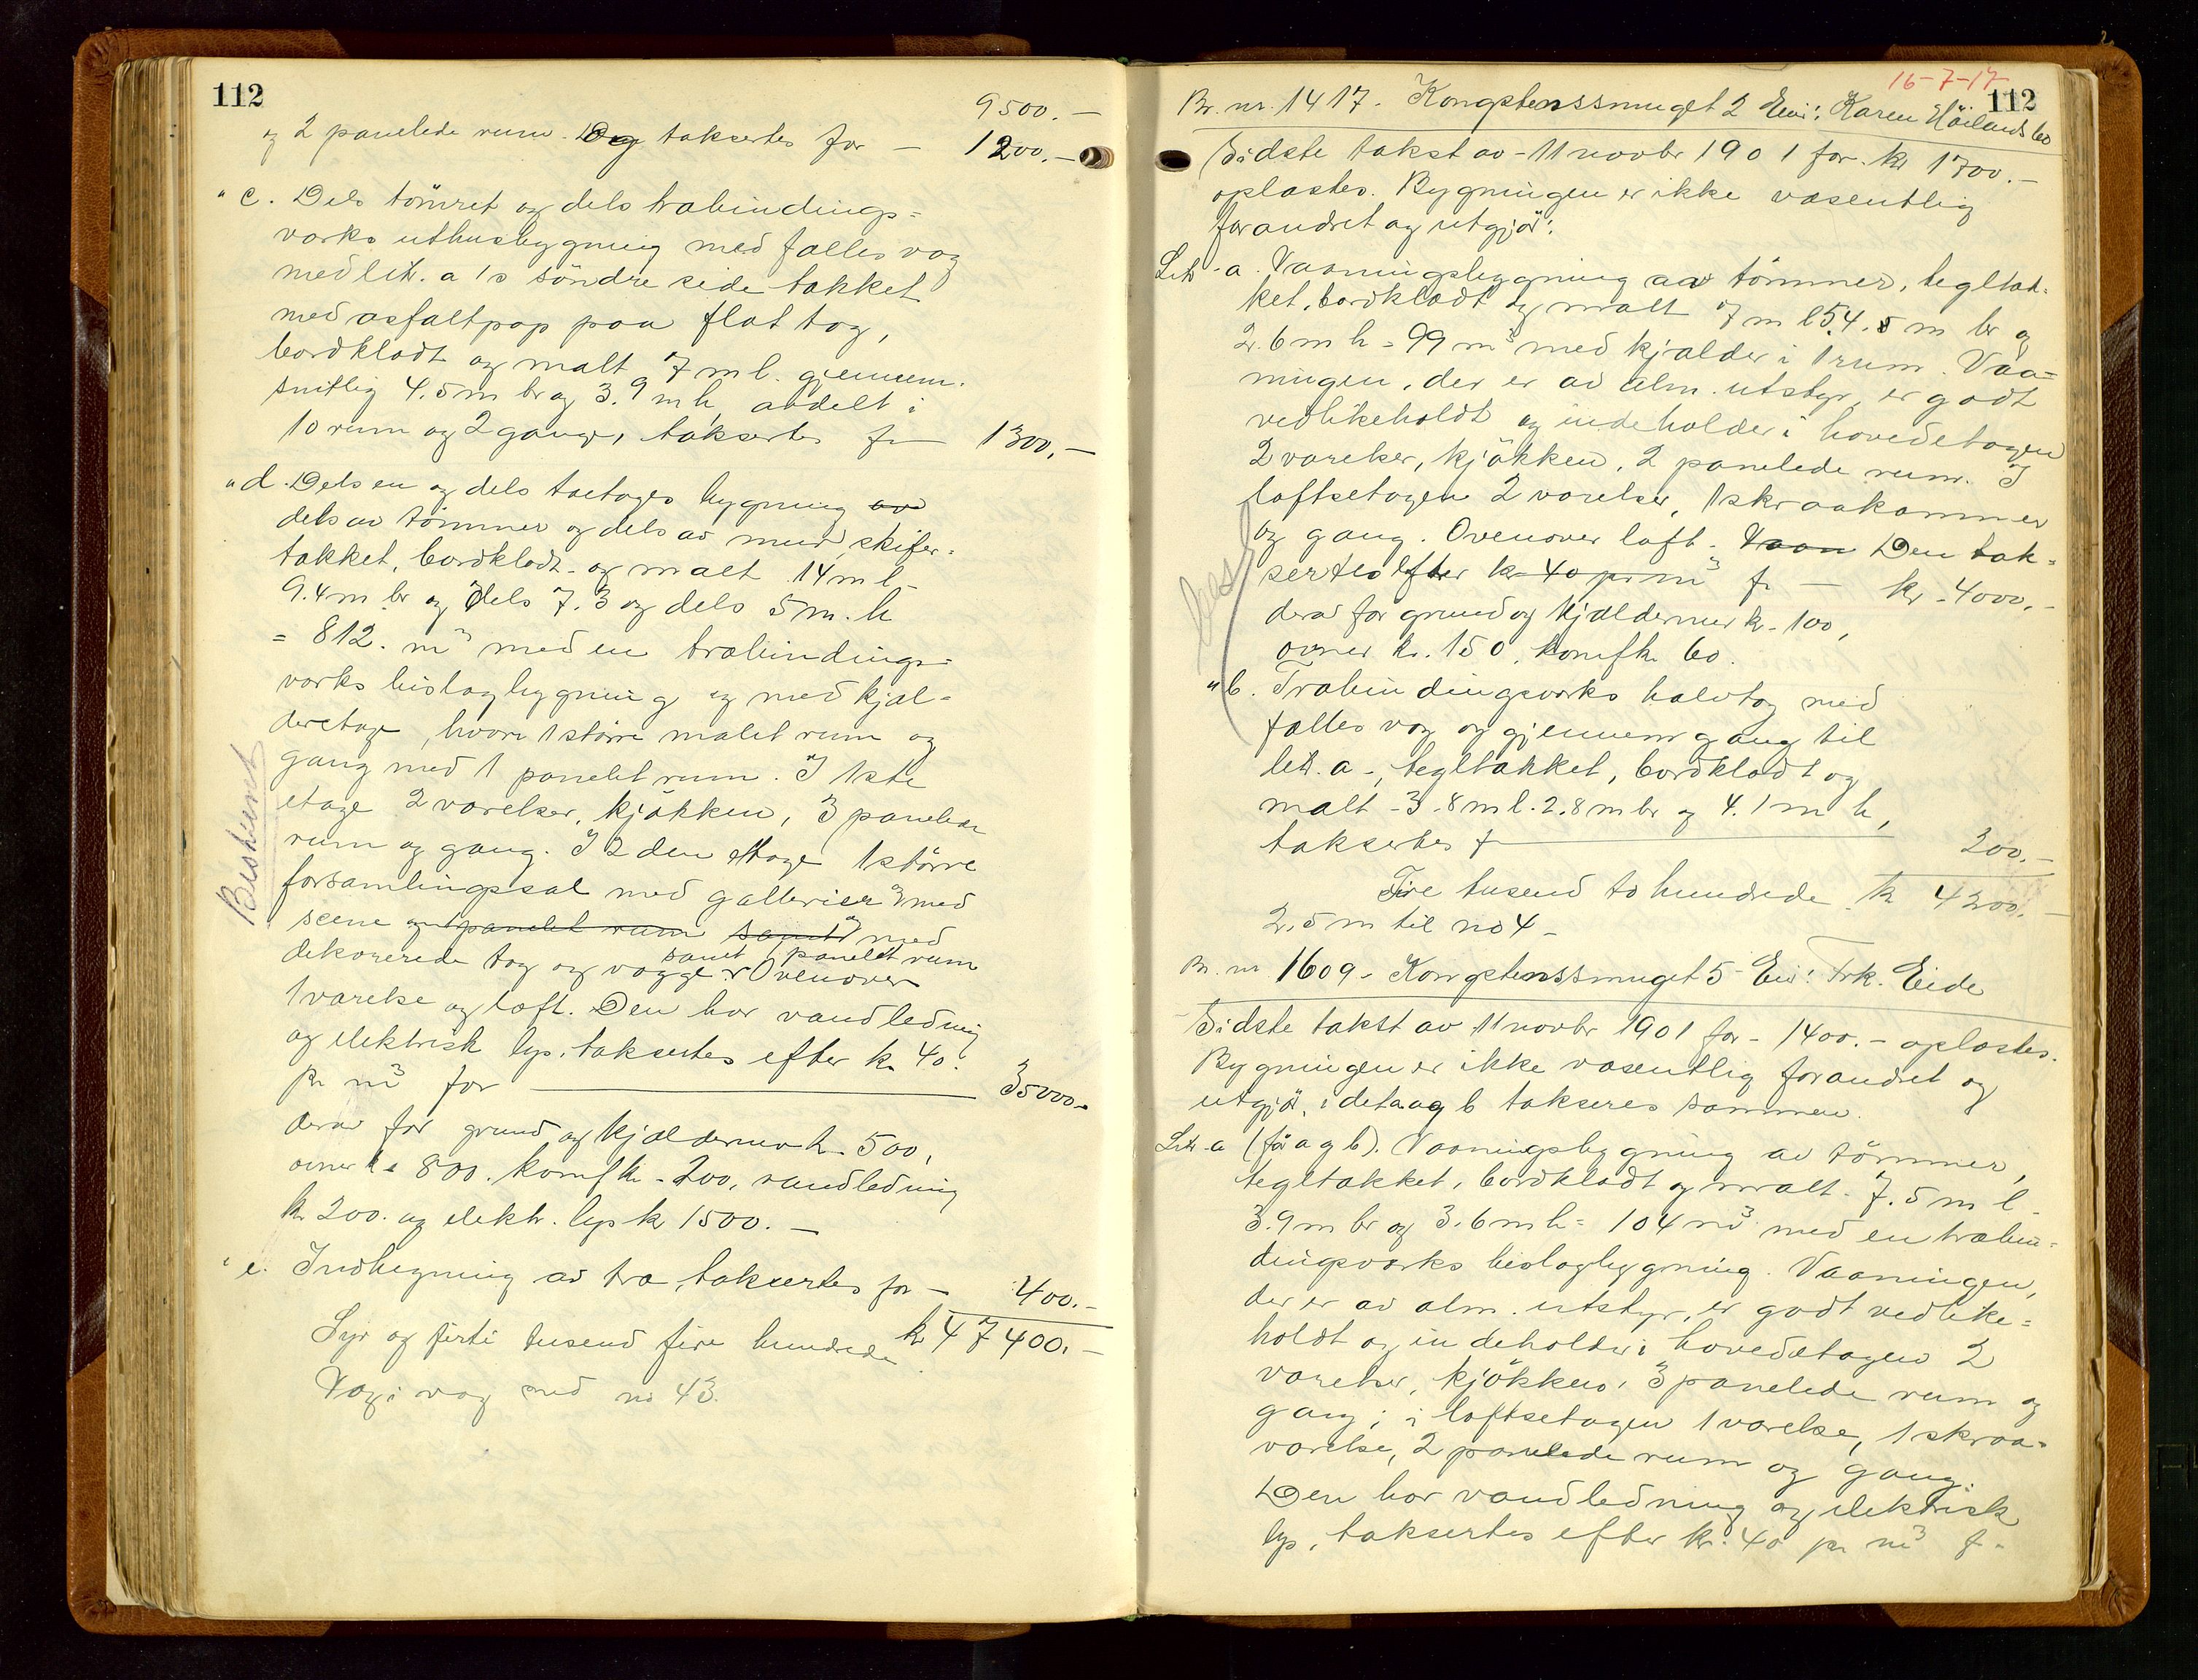 112
9500.-
og 2 panelede rum. Deg taksertes for - 1200.-
" c. Dels tömret og dels træbindings-
værks uthusbygning med fælles væg
med litr. a 's söndre side tækket
med asfaltpap paa flat tag,
bordklædt og malt 7 m l. gjennem-
snitlig 4.5 m br og 3.9 m h, avdelt i
10 rum og 2 gange, taksertes for 1300.-
" d. Dels en og dels toetages bygning av
dels av tömmer og dels av mur, skifer-
tækket, bordklædt og malt 14 m l -
9.4 m br og dels 7.3 og dels 5 m. h
= 812. m³ med en træbindings-
værks bislagbygning og med kjæl-
deretage, hvori 1 större malet rum og
gang med 1 panelet rum. I 1ste
etage 2 værelser, kjökken, 3 panelede
rum og gang. I 2den etage 1 större
forsamlingssal med gallerier og med
scene og 1 panelet rum samt med
samt 1 panelet rum
dekorerede tag og vægge. Ovenover
1 værelse og loft. Den har vandledning
og elektrisk lys, taksertes efter kr 40.
pr m³ for 35000.-
derav for grund og kjældermur kr. 500,
ovner kr 800. komf kr - 200, vandledning
kr 200. og elektr. lys kr 1500. -
" e. Indhegning av træ, taksertes for - 400.-
Syv og firti tusend fire hundrede kr 47400.-
Væg i væg med no 43.
Beskrevet
16-7-17
112
Br. nr. 1417. Kongstenssmuget 2 Eier: Karen Höilandsbo
Sidste takst av - 11 novbr 1901 for kr 1700.-
oplæstes. Bygningen er ikke væsentlig
forandret og utgjör:
Litr a. Vaaningsbygning av tömmer, tegltæk-
ket, bordklædt og malt 7 m l 5.4.5 m br og
2.6 m h = 99 m³ med kjælder i 1 rum. Vaa-
ningen, der er av alm. utstyr, er godt
vedlikeholdt og indeholder i hovedetagen
2 værelser, kjökken, 2 panelede rum. I
loftsetagen 2 værelser, 1 skraakammer
og gang. Ovenover loft. Vaan Den tak-
sertes efter kr 40 pr m³ for - kr. 4000.-
derav for grund og kjældermur kr. 100,
ovner kr. 150, komf kr 60.
" b. Træbindingsværks halvtag med
fælles væg og gjennemgang til
litr. a -, tegltækket, bordklædt og
malt - 3.8 m l. 2.8 m br og 4.1 m h,
taksertes for 200.-
Fire tusend to hundrede kr 4200.-
2,5 m til no 4 -
Br. nr. 1609. Kongstenssmuget 5 Eier: Frk. Eide
Sidste takst av 11 novbr 1901 for - 1400.- oplæstes.
Bygningen er ikke væsentlig forandret og
utgjör, idet a og b takseres sammen.
Litr. a (för a og b). Vaaningsbygning av tömmer,
tegltækket, bordklædt og malt. 7.5 m l -
3.9 m br og 3.6 m h = 104 m³ med en træbin-
dingsværks bislagbygning. Vaaningen,
der er av alm. utstyr, er godt vedlike-
holdt og indeholder i hovedetagen 2
værelser, kjökken, 3 panelede rum og
gang; i loftsetagen 1 værelse, 1 skraa-
værelse, 2 panelede rum og gang.
Den har vandledning og elektrisk
lys, taksertes efter kr. 40 pr m³ for